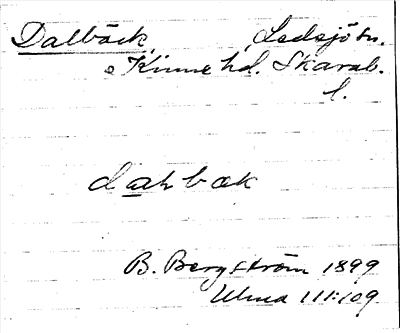 Dalbäck, Ledsjö sn.
Kinne hd. Skarab.
l.
dahbak
B. Bergström 1899
Ulma 111:109